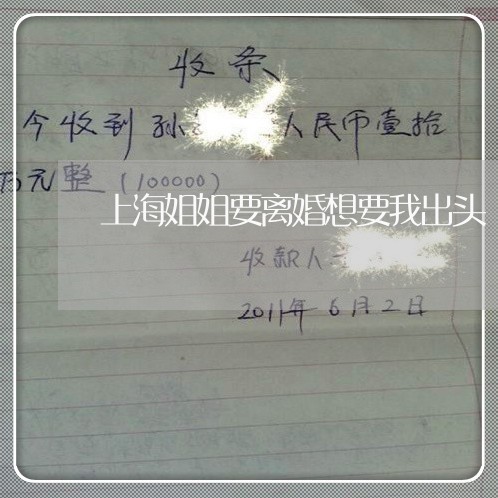 收条
今收到孙 人民币壹拾
万元整（100000）
上海姐姐要离婚想要我出头
收款人
2011年6月2日